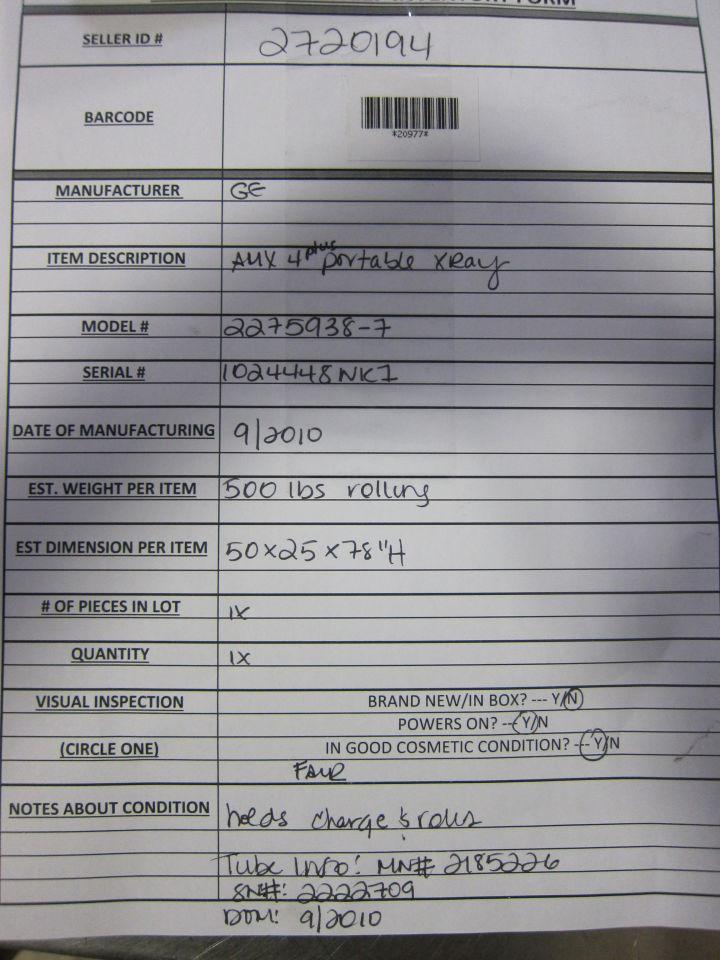 FORM
SELLER ID # 2720194
BARCODE
*20977*
MANUFACTURER GE
ITEM DESCRIPTION AMX 4 plus portable XRay
MODEL # 2275938-7
SERIAL # 1024448NK1
DATE OF MANUFACTURING 9/2010
EST. WEIGHT PER ITEM 500 lbs rolling
EST DIMENSION PER ITEM 50x25x78"H
# OF PIECES IN LOT 1X
QUANTITY 1X
VISUAL INSPECTION BRAND NEW/IN BOX? --- Y/N
POWERS ON? ---Y/N
(CIRCLE ONE) IN GOOD COSMETIC CONDITION? --- Y/N
FAIR
NOTES ABOUT CONDITION holds charge & rolls
Tube Info: MN# 2185226
SN#: 2222709
DOM: 9/2010